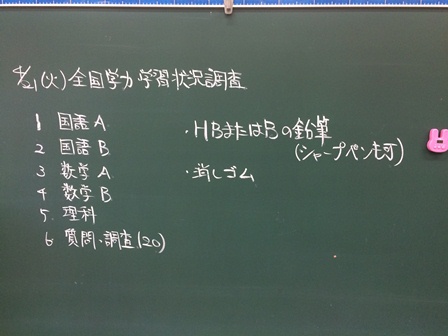 4/21(火)全国学力学習状況調査
1 国語A
2 国語B
3 数学A
4 数学B
5. 理科
6 質問・調査(20)
・HBまたはBの鉛筆
(シャープペンも可)
・消しゴム